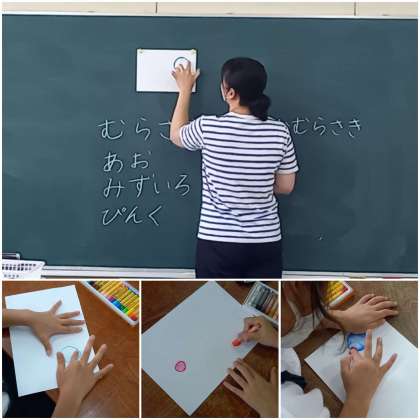 むらさ むらさき
あお
みずいろ
ぴんく